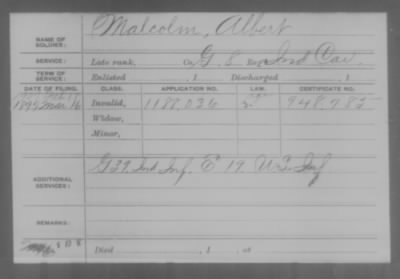 NAME OF SOLDIER: Malcolm, Albert
SERVICE: Late rank, Co. G. 8 Reg't Ind Cav.
TERM OF SERVICE: Enlisted , 1 Discharged , 1
DATE OF FILING. CLASS. APPLICATION NO. LAW. CERTIFICATE NO.
1895 Mar 16 Invalid, 1188,036 948,782
Widow,
Minor,
ADDITIONAL SERVICES: G 39. Ind Inf. E 19. U.S. Inf
REMARKS:
Died , 1 , at